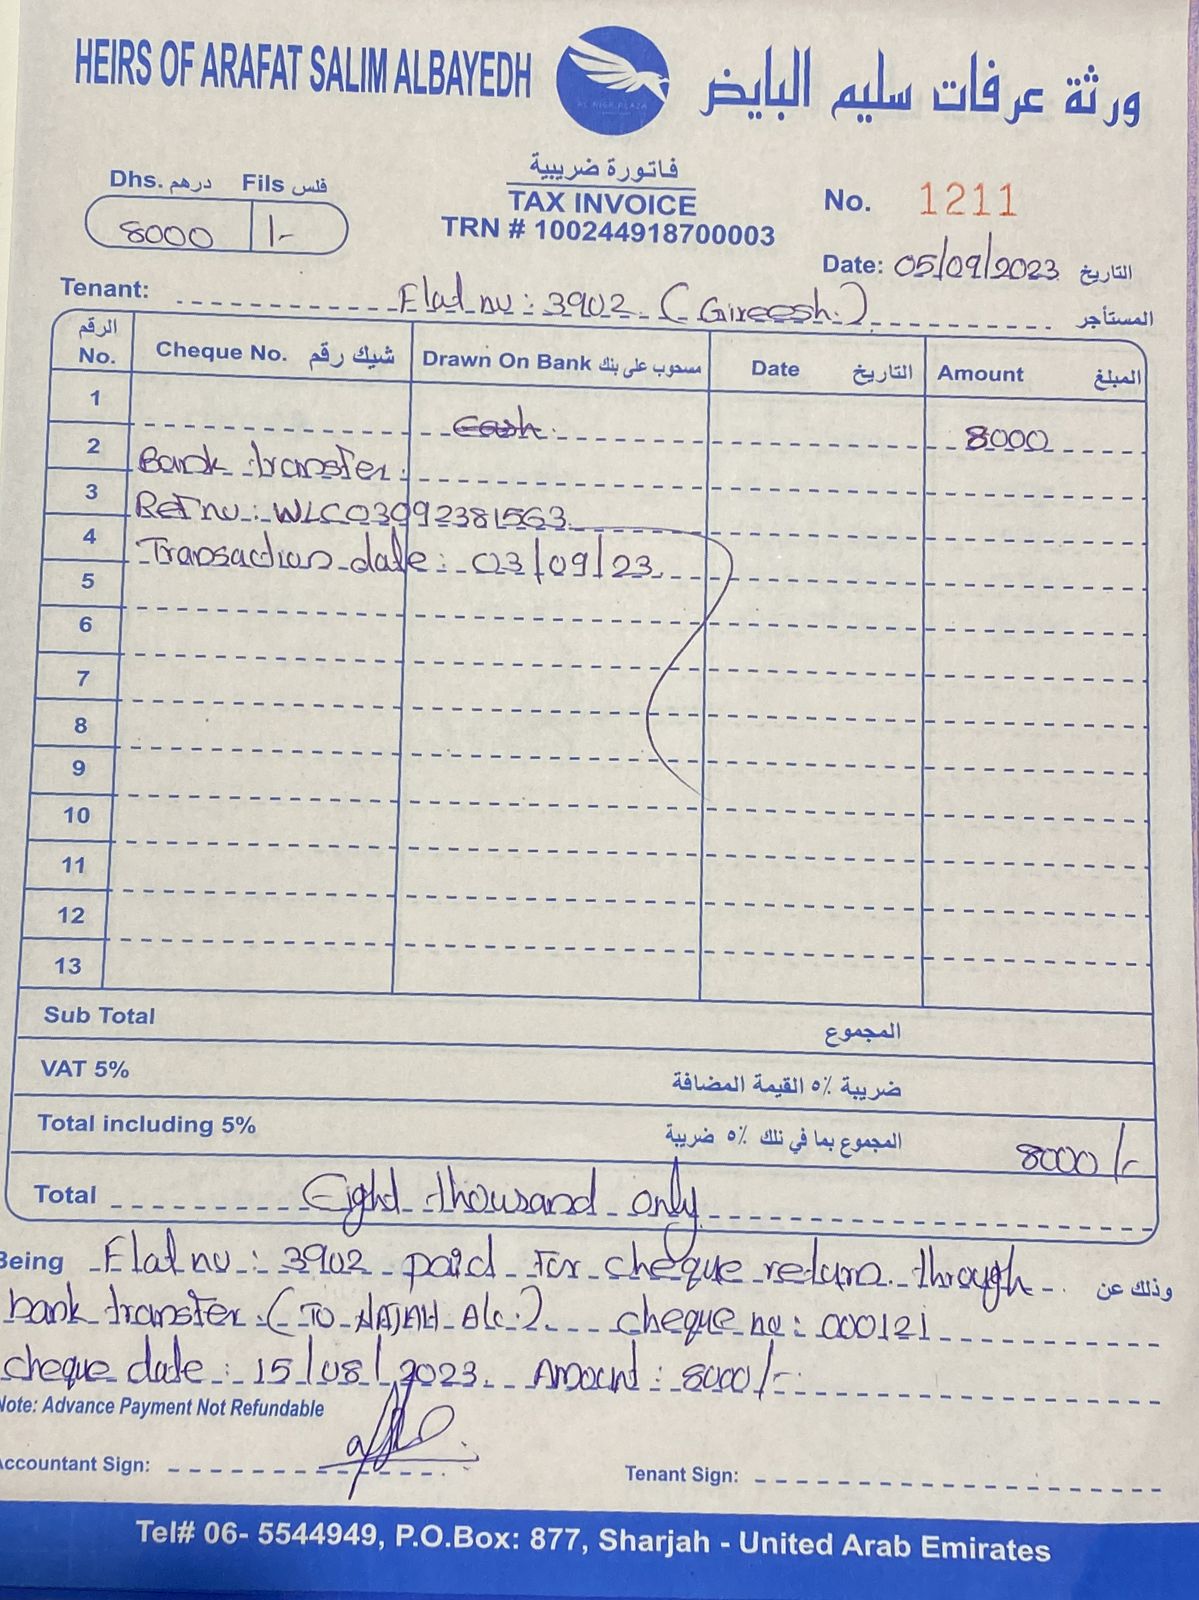 HEIRS OF ARAFAT SALIM ALBAYEDH
ورثة عرفات سليم البايض
فاتورة ضريبية
TAX INVOICE
TRN # 100244918700003
Dhs. درهم Fils فلس
8000 /-
No. 1211
Date: 05/09/2023 التاريخ
Tenant: Flat no: 3902 (Gireesh.) المستأجر
الرقم No. Cheque No. شيك رقم Drawn On Bank مسحوب على بنك Date التاريخ Amount المبلغ
1 Cash 8000
2 Bank transfer.
3 Ref no: WLC03092381563
4 Transaction date: 03/09/23
5
6
7
8
9
10
11
12
13
Sub Total المجموع
VAT 5% ضريبة ٥٪ القيمة المضافة
Total including 5% المجموع بما في تلك ٥٪ ضريبة 8000/-
Total Eight thousand only
Being Flat no: 3902 paid for cheque return through وذلك عن
bank transfer. (TO NAJAH A/c.) cheque no: 000121
cheque date: 15/08/2023. Amount: 8000/-
Note: Advance Payment Not Refundable
Accountant Sign:
Tenant Sign:
Tel# 06- 5544949, P.O.Box: 877, Sharjah - United Arab Emirates